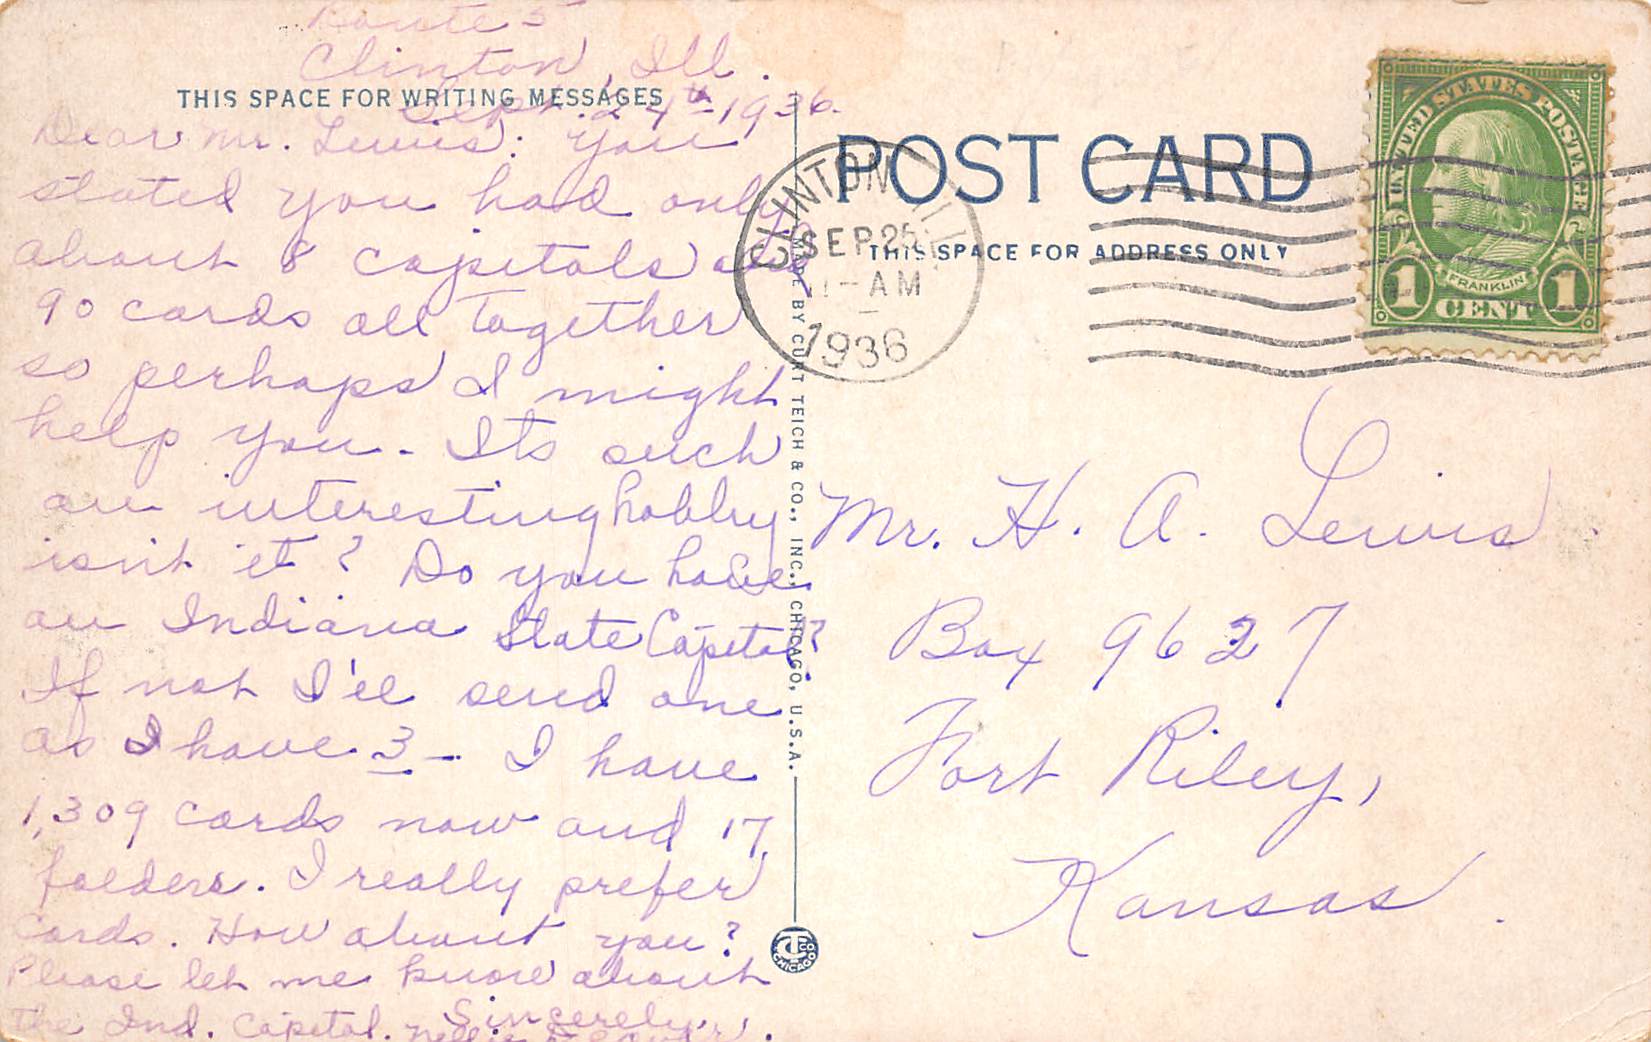 Route 5
Clinton, Ill.
THIS SPACE FOR WRITING MESSAGES
Sept. 24th-1936.
Dear Mr. Lewis: You
stated you had only
about 8 capitals and
90 cards all together
so perhaps I might
help you. Its such
an interesting hobby
isn't it? Do you have
an Indiana State Capitol?
If not I'll send one
as I have 3 - I have
1,309 cards now and 17
folders. I really prefer
cards. How about you?
Please let me know about
the Ind. Capitol. Sincerely,
Nellie
MADE BY CURT TEICH & CO., INC., CHICAGO, U.S.A.
CT CO. CHICAGO
POST CARD
THIS SPACE FOR ADDRESS ONLY
CLINTON ILL.
SEP 25
11-AM
1936
UNITED STATES POSTAGE
FRANKLIN
1 CENT 1
Mr. H. A. Lewis
Box 9627
Fort Riley,
Kansas.